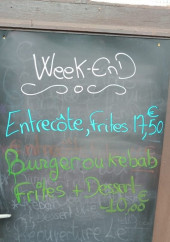 Week-End
Entrecôte, Frites 17,50 €
Burger ou Kebab
Frites + Dessert